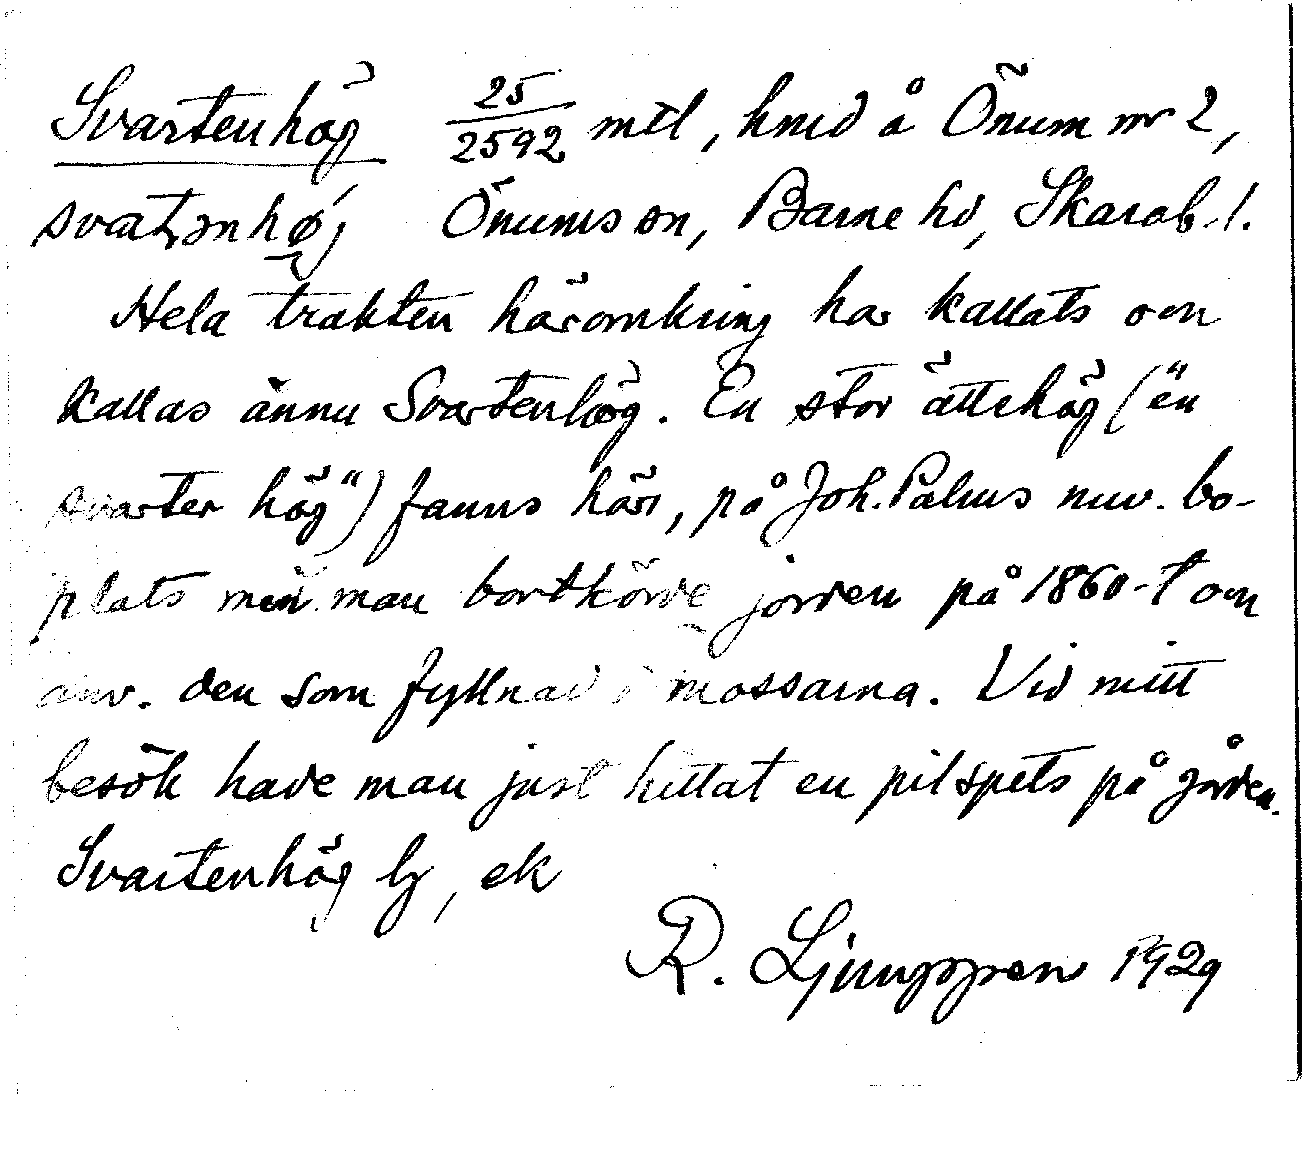 Svartenhög 25/2592 mtl, hmd å Önum nr 2,
svat̩ənhø̜j Önums sn, Barne hd, Skarab. l.
Hela trakten häromkring har kallats och
kallas ännu Svartenhög. En stor ättehög ("ën
svarter hög") fanns här, på Joh. Palms nuv. bo-
plats men man bortkörde jorden på 1860-t och
anv. den som fyllnad i mossarna. Vid mitt
besök hade man just hittat en pilspets på gården.
Svartenhög lj, ek
R. Ljunggren 1929